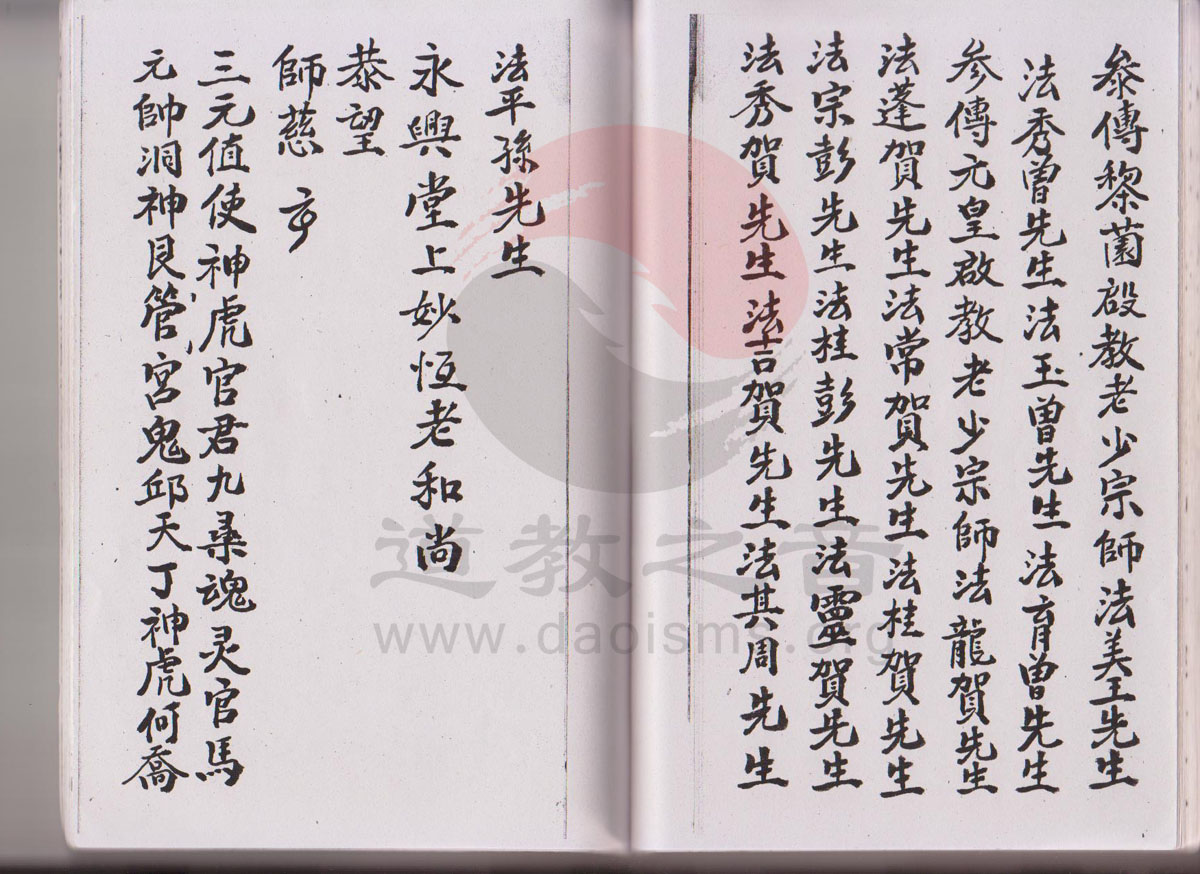 叅傳黎薗啟教老少宗師法美王先生
法秀曾先生法玉曾先生法育曾先生
参傳元皇啟教老少宗師法龍賀先生
法蓬賀先生法常賀先生法桂賀先生
法宗彭先生法桂彭先生法靈賀先生
法秀賀先生法言賀先生法其周先生
法平孫先生
永興堂上妙恆老和尚
恭望
師慈
三元值使神虎官君九喿魂灵官馬
元帥洞神艮管宮鬼邱天丁神虎何喬
道教之音
www.daoisms.org